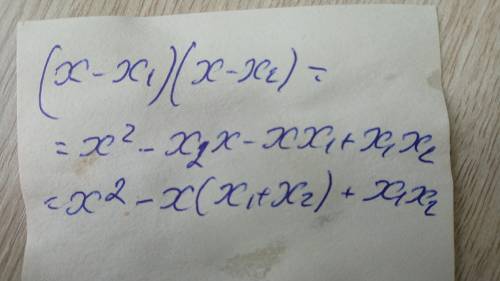 (x - x₁)(x - x₂) =
= x² - x₂x - xx₁ + x₁x₂
= x² - x(x₁ + x₂) + x₁x₂